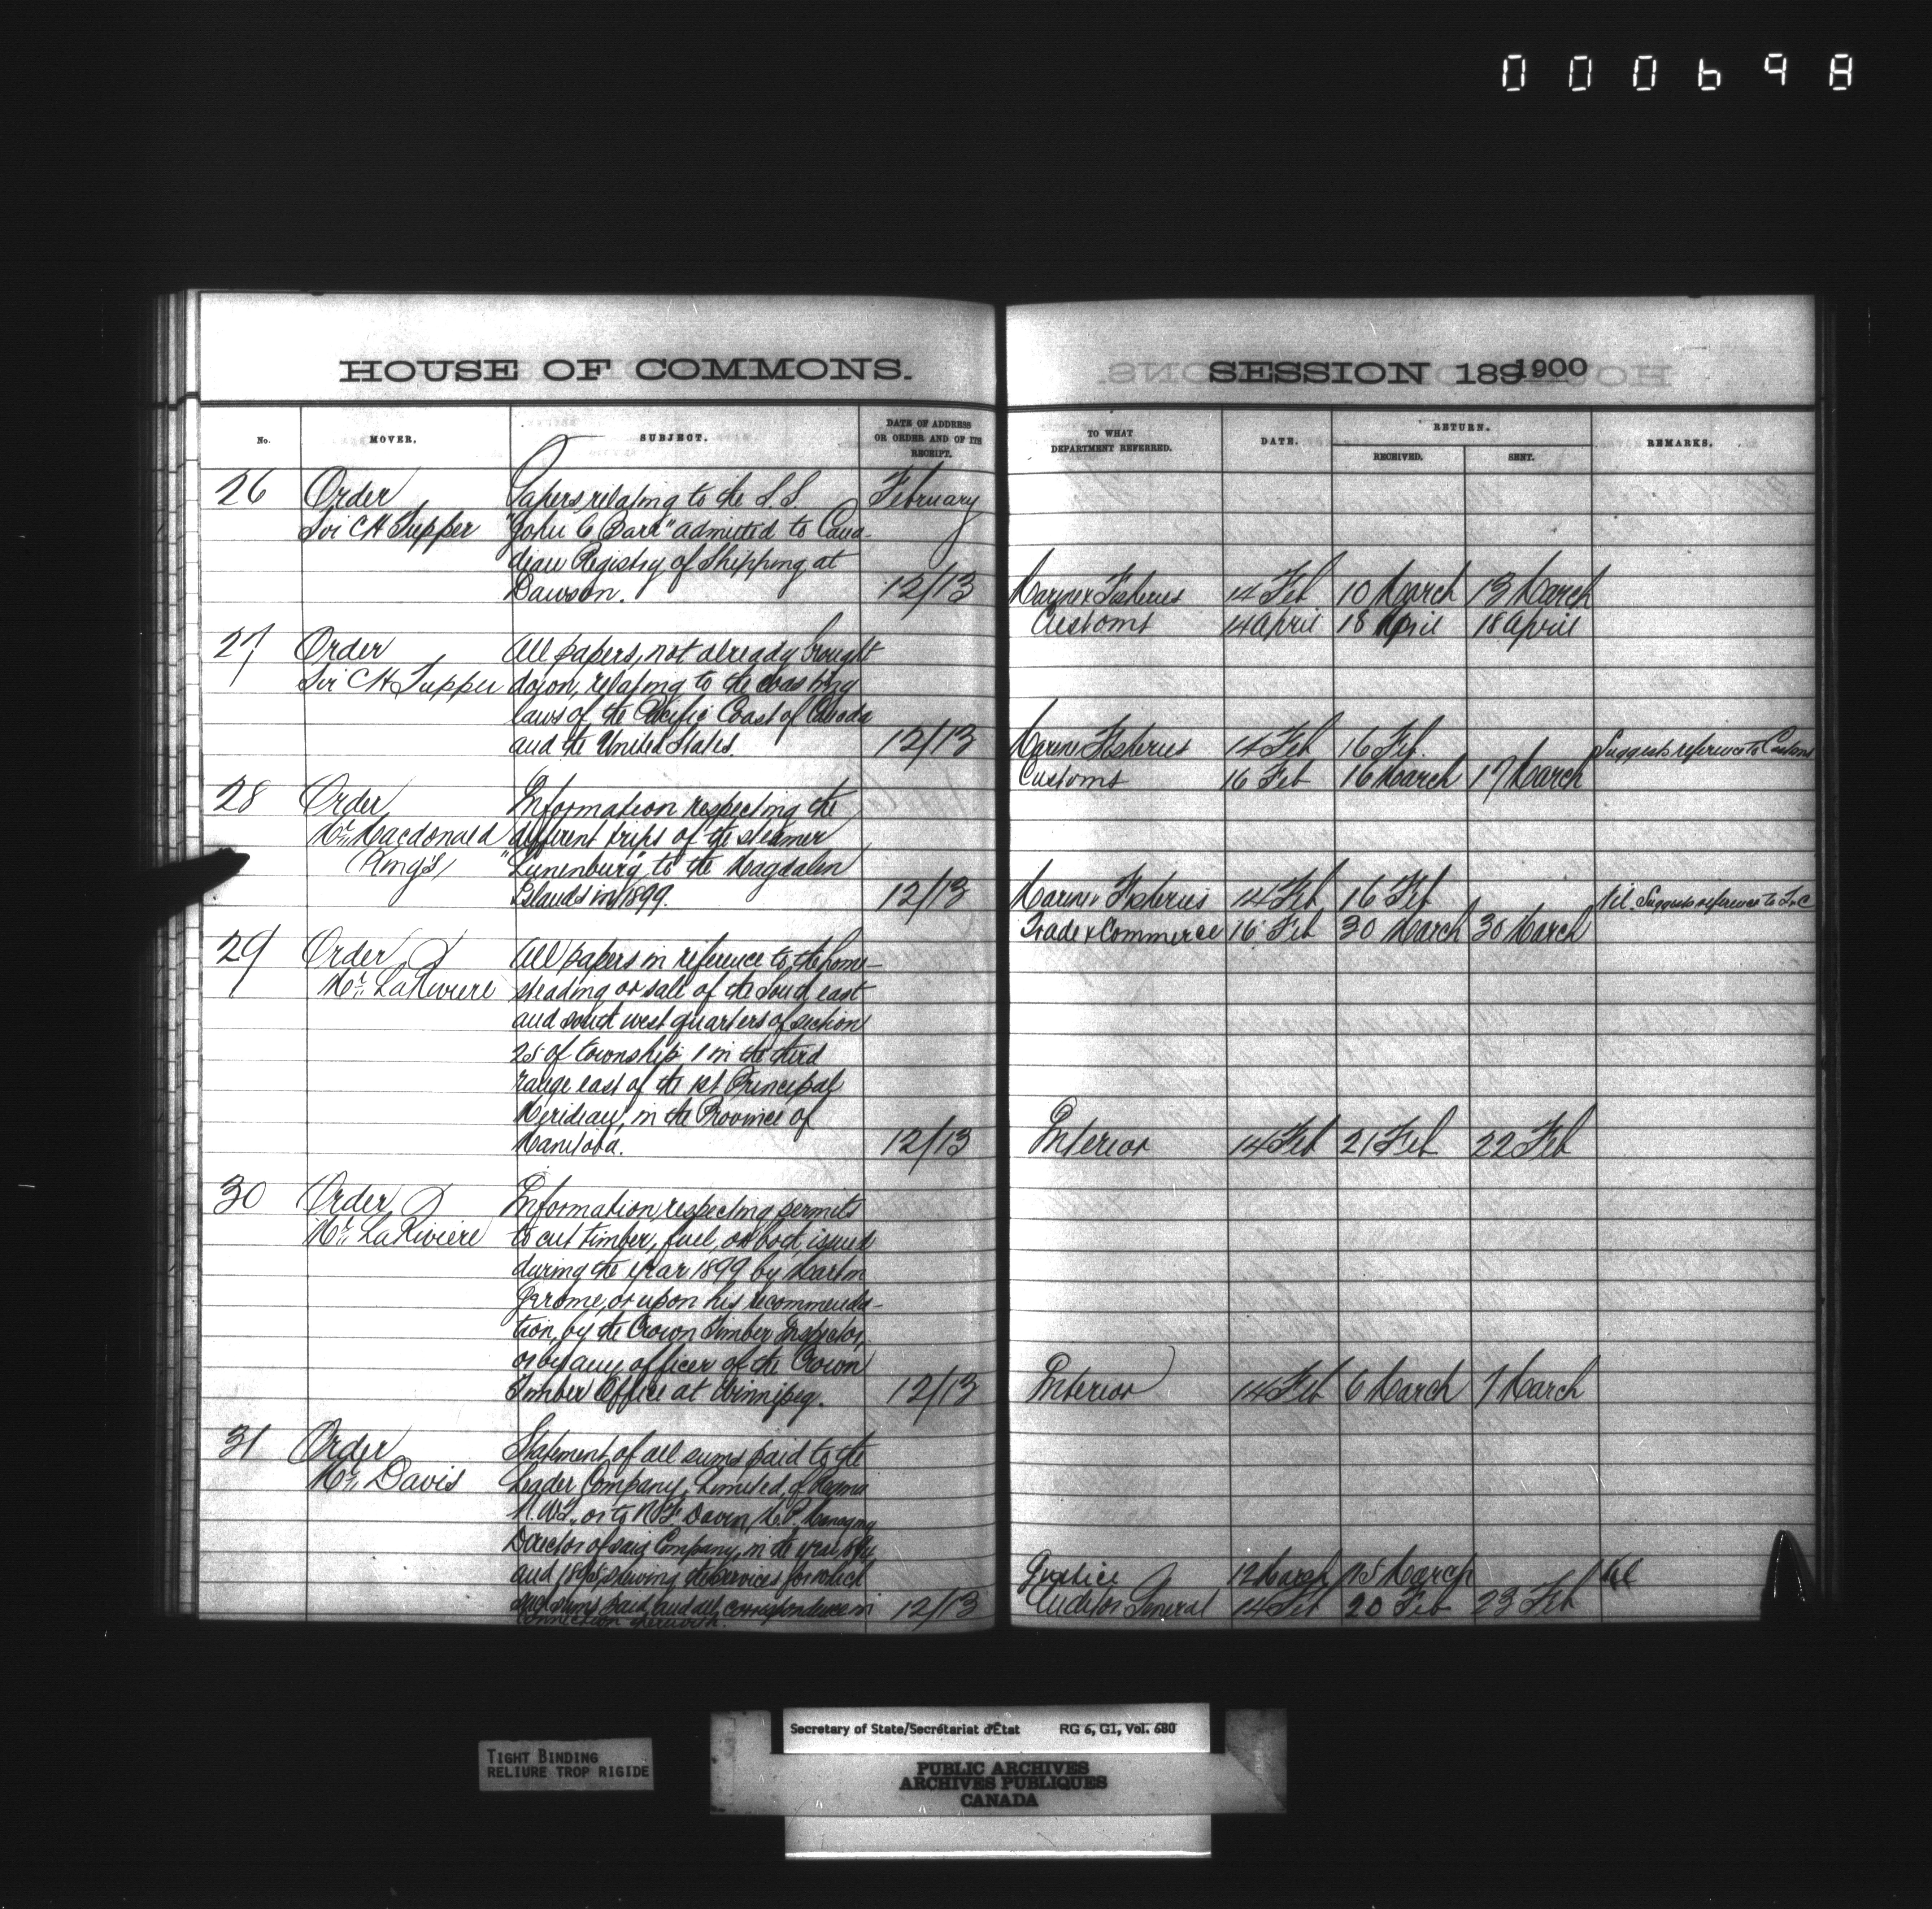 000698
HOUSE OF COMMONS.
SESSION 189 1900
No.
MOVER.
SUBJECT.
DATE OF ADDRESS
OR ORDER AND OF ITS
RECEIPT.
TO WHAT
DEPARTMENT REFERRED.
DATE.
RETURN.
RECEIVED.
SENT.
REMARKS.
26 Order Papers relating to the S.S. February
Sir CH Tupper "John C Barr" admitted to Cana-
dian Registry of Shipping at
Dawson. 12/13 Marine & Fisheries 14 Feb 10 March 13 March
Customs 14 April 18 April 18 April
27 Order All papers, not already brought
Sir CH Tupper down, relating to the coasting
laws of the Pacific Coast of Canada
and the United States. 12/13 Marine Fisheries 14 Feb 16 Feb. Suggests reference to Customs
Customs 16 Feb 16 March 17 March
28 Order Information respecting the
Mr. Macdonald different trips of the steamer
(King's) "Lunenburg" to the Magdalen
Islands in 1899. 12/13 Marine & Fisheries 14 Feb 16 Feb Nil. Suggests reference to T & C
Trade & Commerce 16 Feb 30 March 30 March
29 Order All papers in reference to the home-
Mr. LaRiviere steading or sale of the South east
and south west quarters of section
25 of township 1 in the third
range east of the 1st Principal
Meridian, in the Province of
Manitoba. 12/13 Interior 14 Feb 21 Feb 22 Feb
30 Order Information respecting permits
Mr. LaRiviere to cut timber, fuel, or both issued
during the year 1899 by Martin
Jerome, or upon his recommenda-
tion, by the Crown Timber Inspector,
or by any officer of the Crown
Timber Office at Winnipeg. 12/13 Interior 14 Feb 6 March 7 March
31 Order Statement of all sums paid to the
Mr. Davis Leader Company, Limited, of Regina
N.W.T., or to N F Davin, M.P. Managing
Director of said Company, in the year 1894
and 1895, shewing the services for which Justice 12 March 15 March Nil
such sums paid and all correspondence in 12/13 Auditor General 14 Feb 20 Feb 23 Feb
connection therewith.
Secretary of State/Secrétariat d'État RG 6, G1, Vol. 680
TIGHT BINDING
RELIURE TROP RIGIDE
PUBLIC ARCHIVES
ARCHIVES PUBLIQUES
CANADA